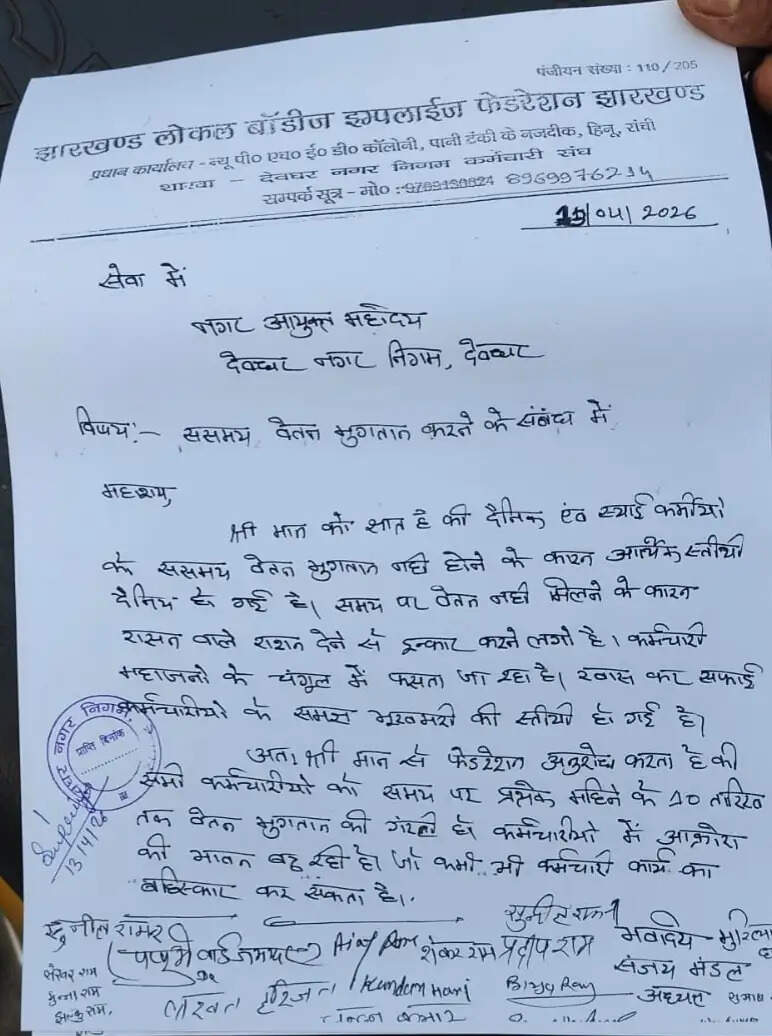 पंजीयन संख्या : 110/205
झारखण्ड लोकल बॉडीज इम्पलाईज फेडरेशन झारखण्ड
प्रधान कार्यालय - न्यू पी० एच० ई० डी० कॉलोनी, पानी टंकी के नजदीक, हिनू, रांची
शाखा - देवघर नगर निगम कर्मचारी संघ
सम्पर्क सूत्र - मो० : 8969976214
/04/2026
सेवा में
नगर आयुक्त महोदय
देवघर नगर निगम, देवघर
विषय:- ससमय वेतन भुगतान करने के संबंध में
महाशय,
श्री मान को ज्ञात है की दैनिक एंव स्थाई कर्मीयो
के ससमय वेतन भुगतान नही होने के कारन आर्थिक स्तीथी
दैनिय हो गई है। समय पर वेतन नही मिलने के कारन
रासन वाले राशन देने से इन्कार करने लगे है। कर्मचारी
महाजनो के चंगुल में फसता जा रहा है। खास कर सफाई
कर्मचारीयो के समक्ष भूखमरी की स्तीथी हो गई है।
अतः श्री मान से फेडरेशन अनुरोध करता है की
सभी कर्मचारीयो को समय पर प्रत्येक महिने के 10 तारिख
तक वेतन भुगतान की गंरटी हो कर्मचारीयो में आक्रोश
की भावन बढ़ रही है। जो कभी भी कर्मचारी कार्य का
बहिस्कार कर सकता है।
देवघर नगर निगम
प्राप्ति दिनांक
13/4/26
सुनील राम
Ajay Ram
शंकर राम
प्रदीप राम
भवदिय
शेखर राम
मुन्ना राम
हरिजन
Kundan Hari
संजय मंडल
अध्यक्ष
कुमार